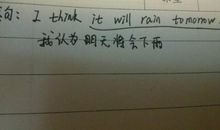 句: I think it will rain tomorrow
我认为明天将会下雨